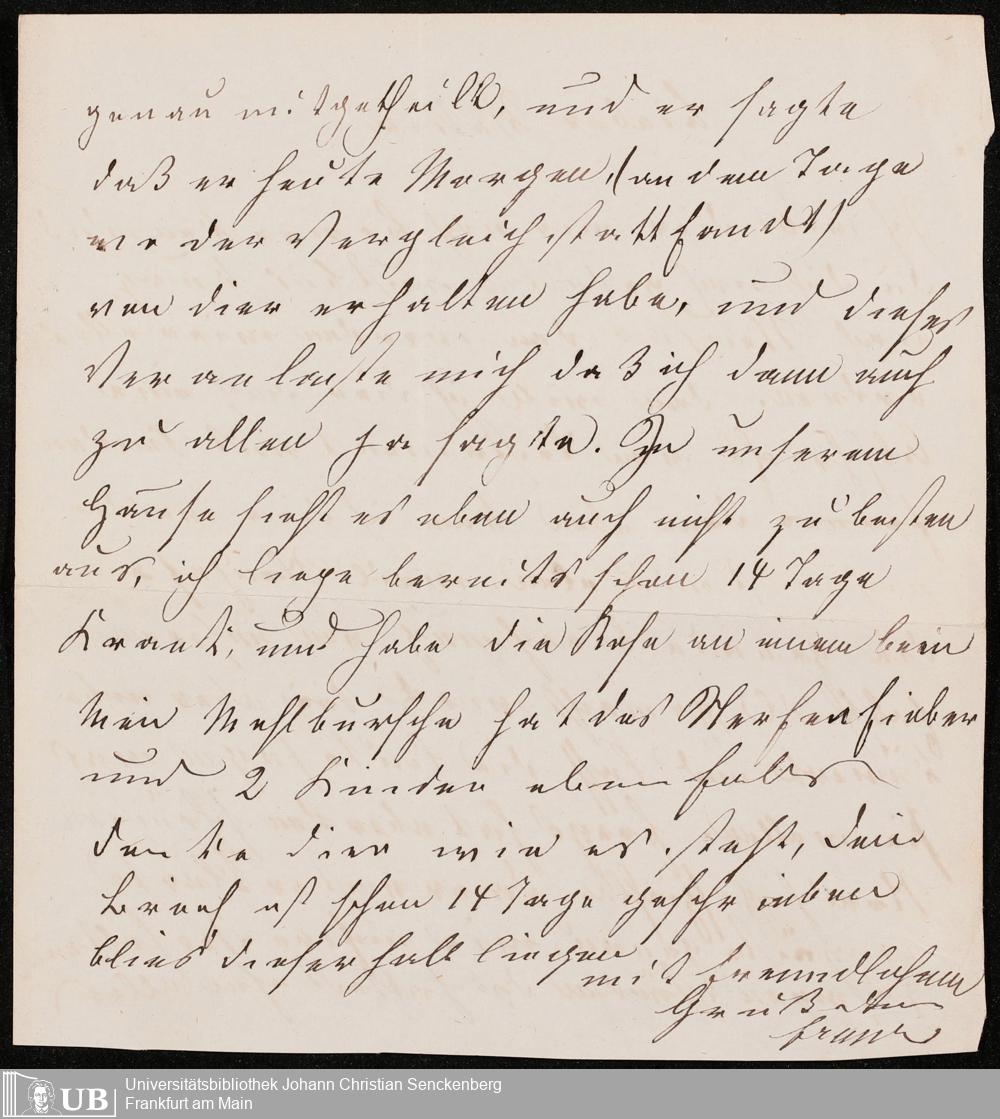 genau mitgetheilt, und er sagte
daß er heute Morgen, (an dem Tage
wo der Vergleich statt fandt)
von dier erhalten habe, und dieses
Veranlaste mich daß ich dann auch
zu allen ja sagte. In unserem
Hause sieht es eben auch nicht zu besten
aus, ich liege bereits schon 14 Tage
Krank, und habe die Rose an einem bein
Mein Mehlbursche hat das Nerfenfieber
und 2 Kinder ebenfals
denke dier wie es steht, dein
Brief ist schon 14 Tage geschrieben
blieb dieserhalb liegen
mit freundlichem
Gruß dein
Franz
Universitätsbibliothek Johann Christian Senckenberg
UB Frankfurt am Main